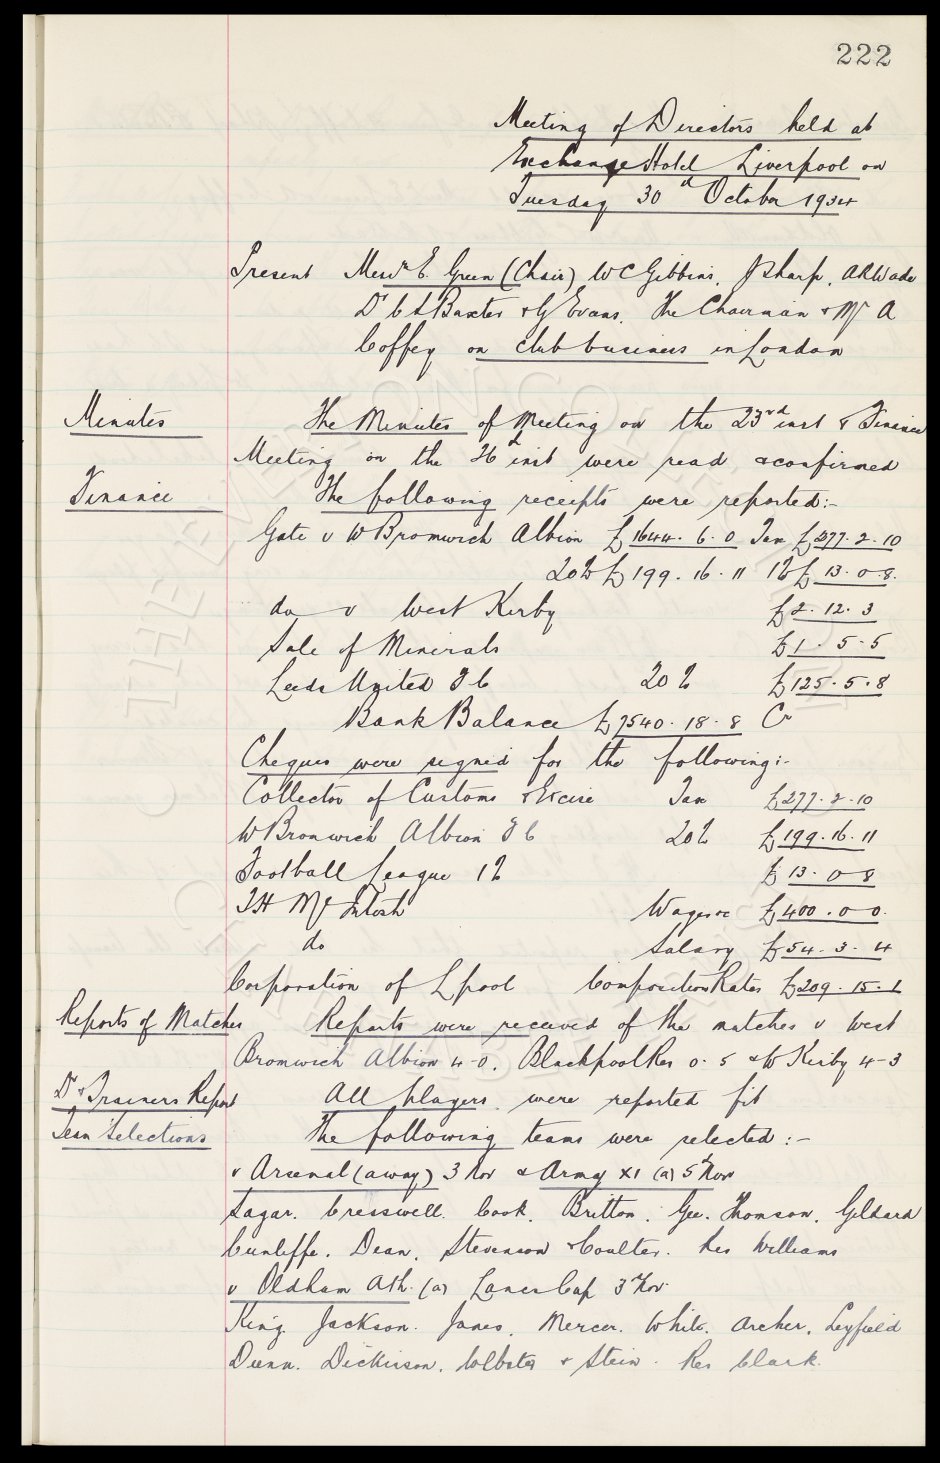 222
Meeting of Directors held at
Exchange Hotel Liverpool on
Tuesday 30d October 1934
Present Messrs E. Green (Chair) W C Gibbins, J Sharp, A R Wade
Dr C S Baxter & G Evans. The Chairman & Mr A
Coffey on club business in London
Minutes The Minutes of Meeting on the 23rd inst & Finance
Meeting on the 26d inst were read & confirmed
Finance The following receipts were reported:-
Gate v W Bromwich Albion £1644. 6. 0 Tax £277. 2. 10
20% £199. 16. 11 1% £13. 0. 8.
do v West Kirby £2. 12. 3
Sale of Minerals £1. 5. 5
Leeds United F C 20% £125. 5. 8
Bank Balance £7540. 18. 8 Cr
Cheques were signed for the following:-
Collector of Customs & Excise Tax £277. 2. 10
W Bromwich Albion F C 20% £199. 16. 11
Football League 1% £13. 0 8
T H McIntosh Wages &c £400. 0 0.
do Salary £54. 3. 4
Corporation of Lpool Composition Rates £209. 15. 1
Reports of Matches Reports were received of the matches v West
Bromwich Albion 4-0, Blackpool Res 0-5 & W Kirby 4-3
Dr & Trainers Report All players were reported fit
Team Selections The following teams were selected :-
v Arsenal (away) 3 Nov & Army XI (a) 5th Nov
Sagar. Cresswell. Cook. Britton. Gee. Thomson. Geldard
Cunliffe. Dean. Stevenson & Coulter. Res Williams
v Oldham Ath. (a) Lancs Cup 3rd Nov
King. Jackson. Jones. Mercer. White. Archer. Leyfield
Dunn. Dickinson. Webster & Stein. Res Clark.